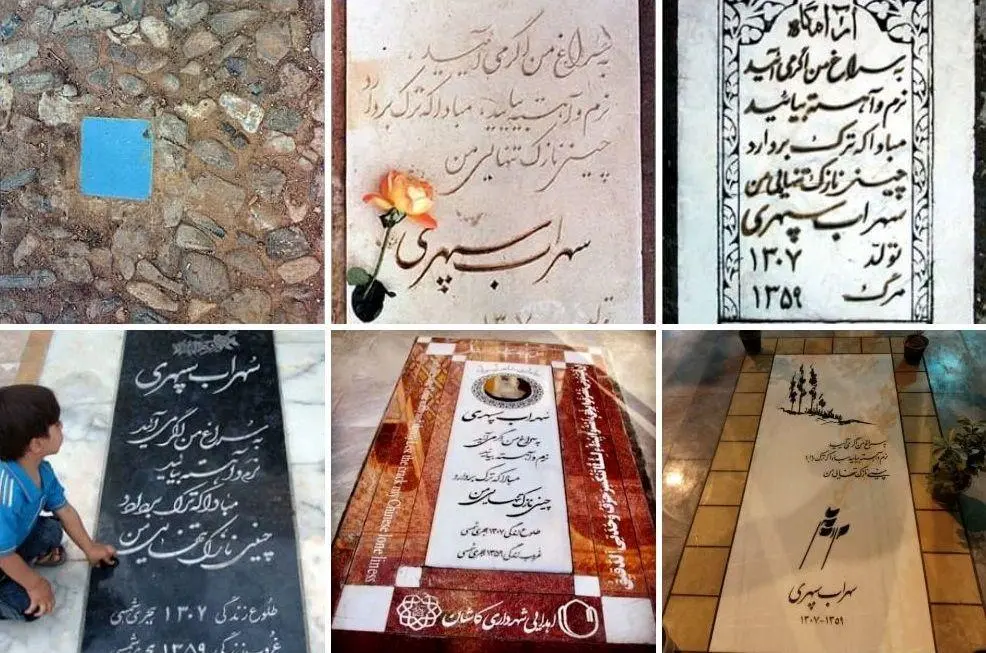 به سراغ من اگر می آیید،
نرم و آهسته بیایید، مبادا که ترک بردارد
چینی نازک تنهایی من
سهراب سپهری
تولد ۱۳۰۷
آرامگاه
به سراغ من اگر می آئید
نرم و آهسته بیائید
مبادا که ترک بردارد
چینی نازک تنهایی من
سهراب سپهری
تولد ۱۳۰۷
مرگ ۱۳۵۹
سهراب سپهری
به سراغ من اگر می آئید
نرم و آهسته بیائید
مبادا که ترک بردارد
چینی نازک تنهایی من
طلوع زندگی ۱۳۰۷ هجری شمسی
غروب زندگی ۱۳۵۹ هجری شمسی
سهراب سپهری
به سراغ من اگر می آئید
نرم و آهسته بیائید
مبادا که ترک بردارد
چینی نازک تنهایی من
طلوع زندگی ۱۳۰۷ هجری شمسی
غروب زندگی ۱۳۵۹ هجری شمسی
crack my Chinese loneliness
اهدایی شهرداری کاشان
به سراغ من اگر می آیید
نرم و آهسته بیایید مبادا که ترک بردارد
چینی نازک تنهایی من
سهراب سپهری
۱۳۰۷-۱۳۵۹